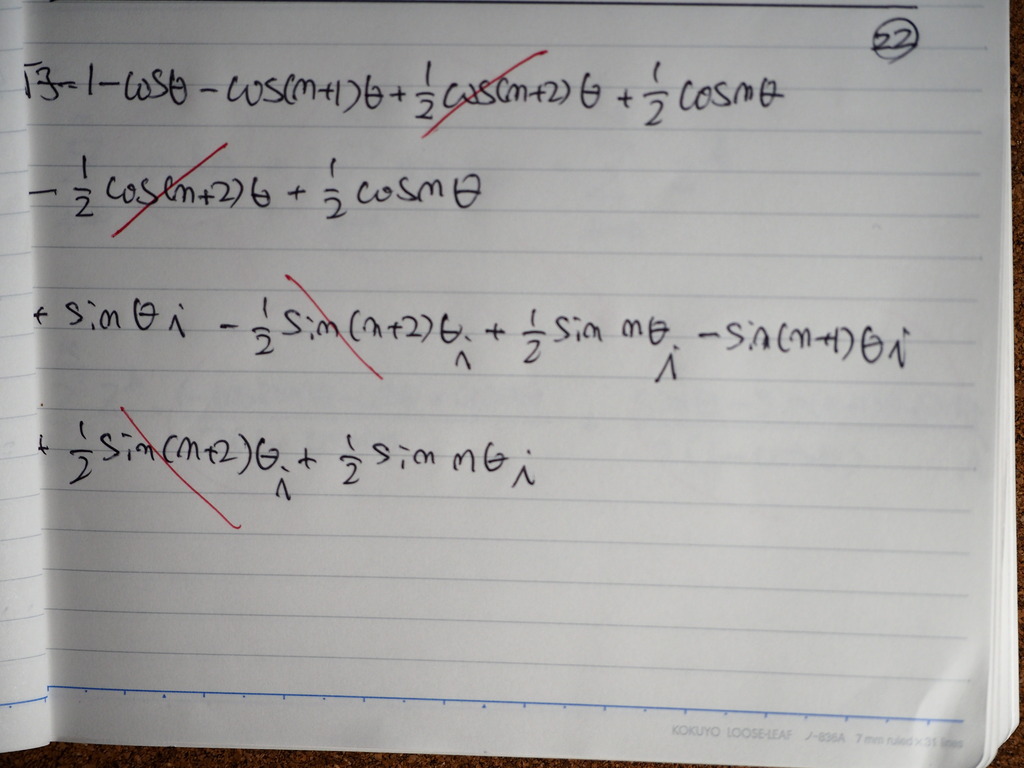 22
√3=1-cosθ-cos(n+1)θ+1/2cos(n+2)θ+1/2cosnθ
-1/2cos(n+2)θ+1/2cosnθ
+sinθi-1/2sin(n+2)θi+1/2sin nθi-sin(n+1)θi
+1/2sin(n+2)θi+1/2sin nθi
KOKUYO LOOSE-LEAF ノ-836A 7mm ruled×31 lines